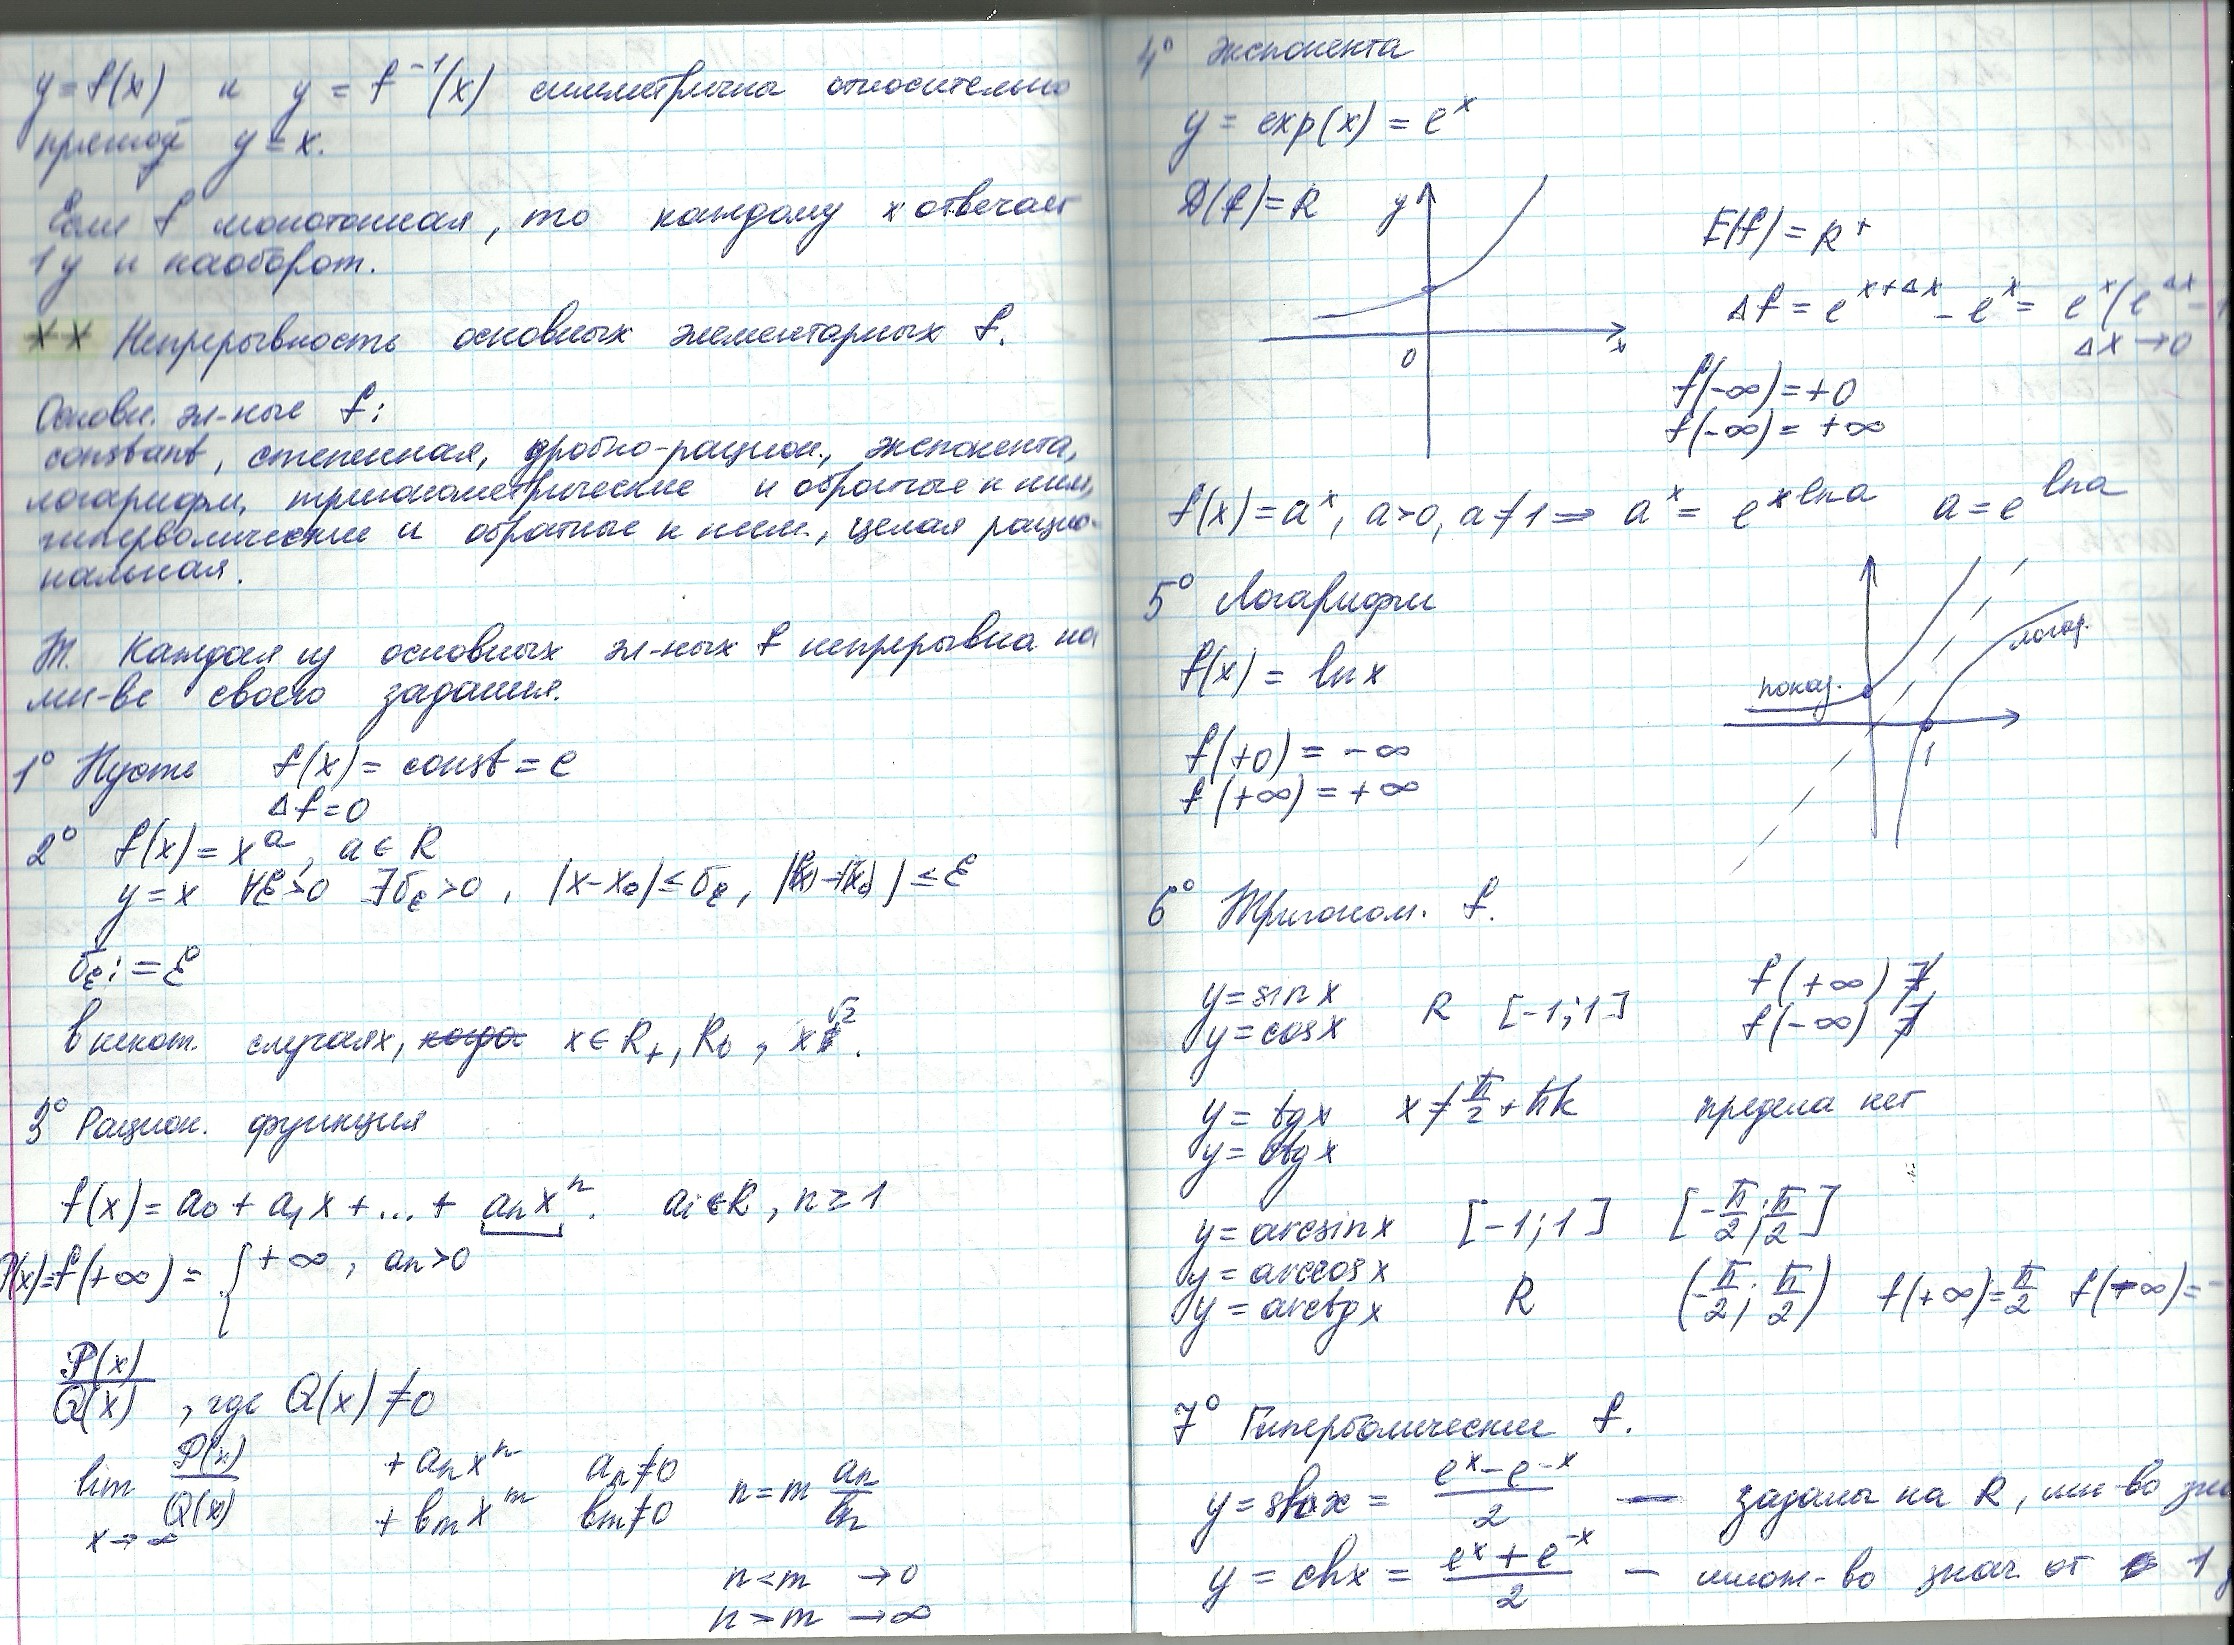 y = f(x) и y = f⁻¹(x) симметричны относительно
прямой y = x.
Если f монотонная, то каждому x отвечает
1 y и наоборот.
** Непрерывность основных элементарных f.
Основн. эл-ные f:
constant, степенная, дробно-рацион., экспонента,
логарифм, тригонометрические и обратные к ним,
гиперболические и обратные к ним, целая рацио-
нальная.
Т. Каждая из основных эл-ных f непрерывна на
мн-ве своего задания.
1° Пусть f(x) = const = c
Δf = 0
2° f(x) = xᵃ, a ∈ R
y = x ∀ε > 0 ∃δε > 0, |x - x₀| ≤ δε, |f(x) - f(x₀)| ≤ ε
δε := ε
В некот. случаях, когда x ∈ R₊, R₀, x^√2.
3° Рацион. функция
f(x) = a₀ + a₁x + ... + aₙxⁿ. aᵢ ∈ R, n ≥ 1
P(x) = f(+∞) = { +∞, aₙ > 0
P(x)/Q(x), где Q(x) ≠ 0
lim x→∞ P(x)/Q(x) + aₙxⁿ aₙ ≠ 0 n = m aₙ/bₙ
+ bₘxᵐ bₘ ≠ 0
n < m → 0
n > m → ∞
4° Экспонента
y = exp(x) = eˣ
D(f) = R y E(f) = R⁺
Δf = e^(x+Δx) - eˣ = eˣ(e^Δx - 1
Δx → 0
0 x
f(-∞) = +0
f(-∞) = +∞
f(x) = aˣ, a > 0, a ≠ 1 ⇒ aˣ = e^(x ln a) a = e^(ln a)
5° Логарифм
логар.
f(x) = ln x
показ.
f(+0) = -∞
1
f(+∞) = +∞
6° Тригоном. f.
y = sin x R [-1; 1] f(+∞) ∄
y = cos x f(-∞) ∄
y = tg x x ≠ π/2 + πk предела нет
y = ctg x
y = arcsin x [-1; 1] [-π/2; π/2]
y = arccos x
y = arctg x R (-π/2; π/2) f(+∞) = π/2 f(-∞) = -
7° Гиперболические f.
y = sh x = (eˣ - e⁻ˣ)/2 — заданы на R, мн-во зна
y = ch x = (eˣ + e⁻ˣ)/2 — множ-во знач. от 1